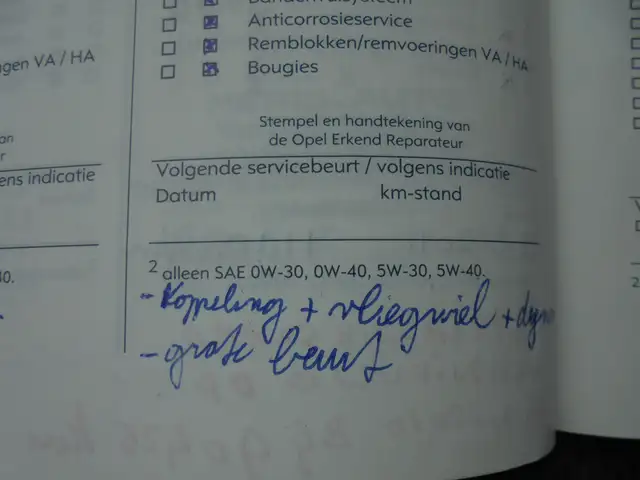 Anticorrosieservice
gen VA / HA
Remblokken/remvoeringen VA / HA
Bougies
Stempel en handtekening van
de Opel Erkend Reparateur
ens indicatie
Volgende servicebeurt / volgens indicatie
Datum km-stand
40.
2 alleen SAE 0W-30, 0W-40, 5W-30, 5W-40.
- Koppeling + vliegwiel +
- grote beurt